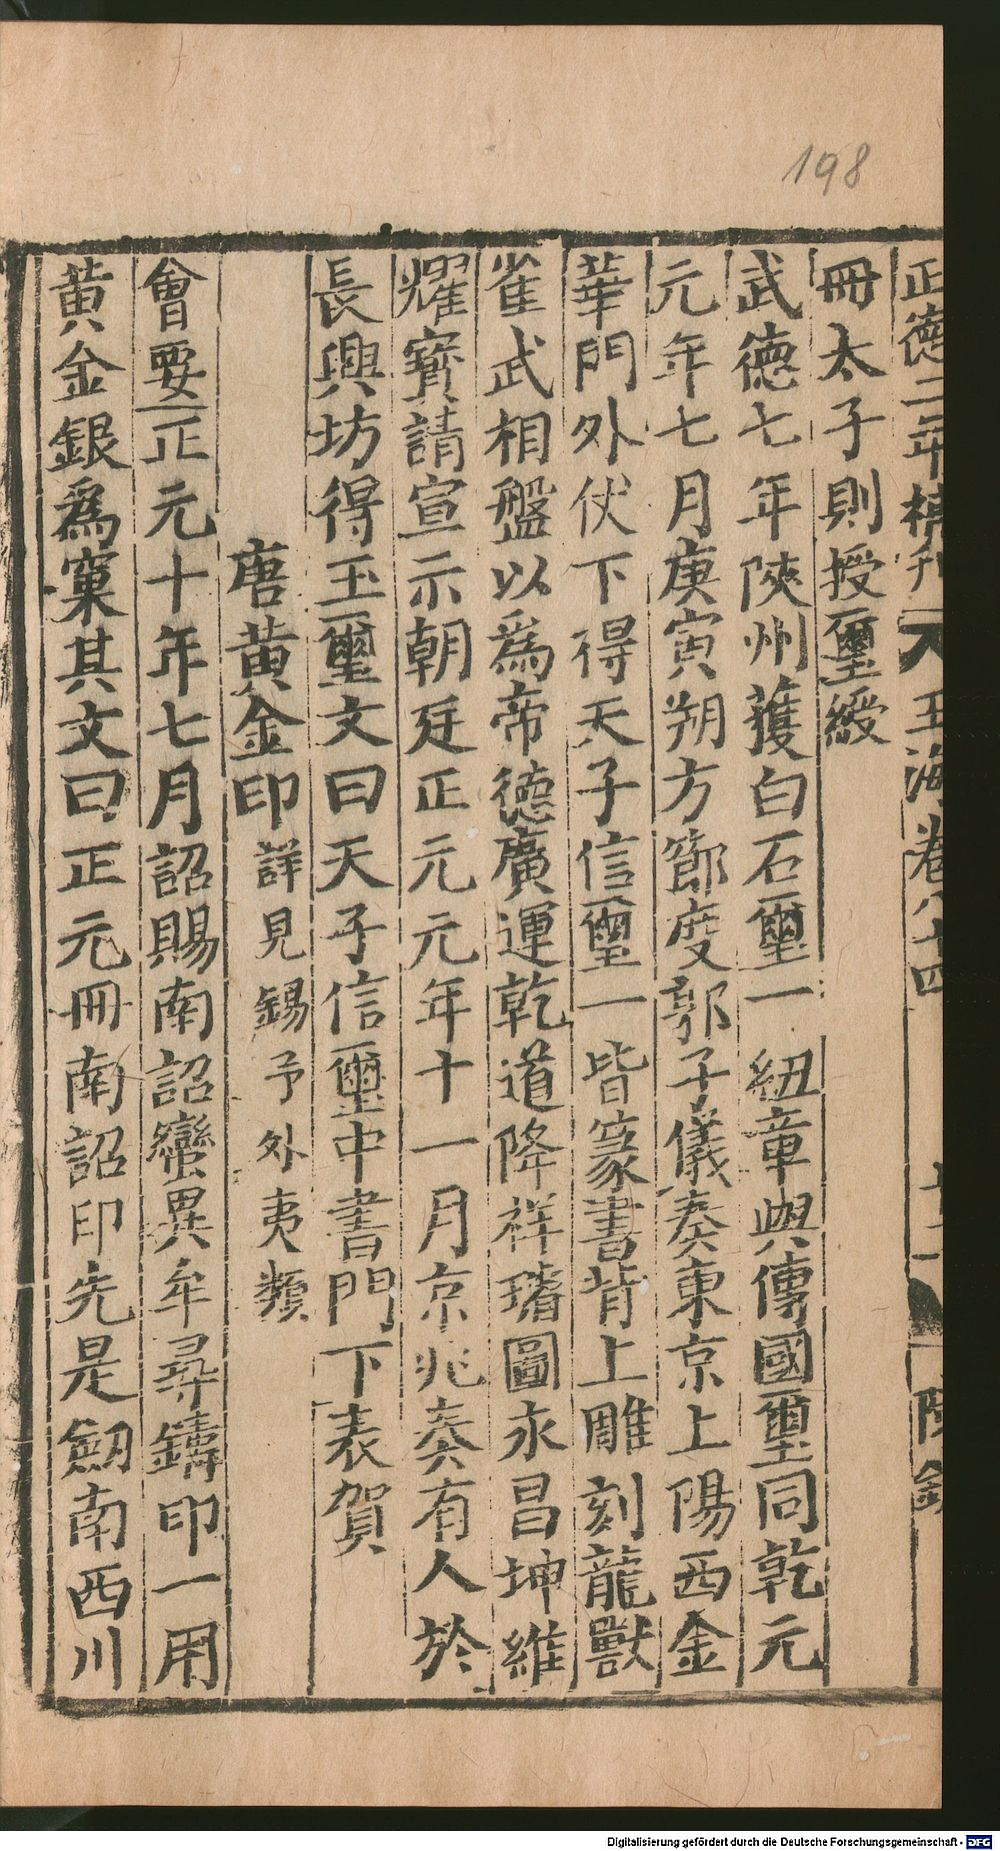 198
正德二年 玉海卷八十四
冊太子則授璽綬
武德七年陝州獲白石璽一 紐章與傳國璽同乾元
元年七月庚寅朔方節度郭子儀奏東京上陽西金
華門外伏下得天子信璽一皆篆書背上雕刻龍獸
雀武相盤以爲帝德廣運乾道降祥璿圖永昌坤維
耀寶請宣示朝廷正元元年十一月京兆奏有人於
長興坊得玉璽文曰天子信璽中書門下表賀
唐黃金印詳見錫予外夷類
會要正元十年七月詔賜南詔蠻異牟尋鑄印一用
黄金銀爲窠其文曰正元冊南詔印先是劒南西川
Digitalisierung gefördert durch die Deutsche Forschungsgemeinschaft - DFG